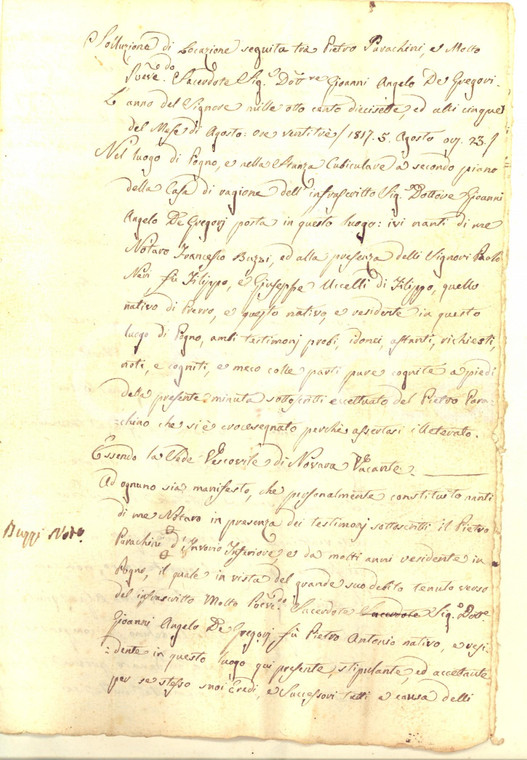 Soluzione di Locazione seguita tra Pietro Parachini, e Molto
Rev.do Sacerdote Sig.r Dott.re Gioanni Angelo De Gregori.
L'anno del Signore mille otto cento diecisette, ed alli cinque
del Mese di Agosto: ore ventitrè / 1817. 5. Agosto ore 23. /
Nel luogo di Pogno, e nella Stanza Cubiculare a secondo piano
della Casa di ragione dell' infrascritto Sig.r Dottore Gioanni
Angelo De Gregorj posta in questo luogo: ivi nanti di me
Notaro Francesco Buzzi, ed alla presenza delli Signori Paolo
Neri fù Filippo, e Giuseppe Uccelli di Filippo, quello
nativo di Prerro, e questo nativo, e residente in questo
luogo di Pogno, ambi testimonj probi, idonei, astanti, richiesti,
noti, e cogniti, e meco colle parti pure cognite a piedi
della presente minuta sottoscritti eccettuato del Pietro Para-
chino che si è crocesegnato perchè assertosi illeterato.
Essendo la Sede Vescovile di Novara Vacante.
Ad ognuno sia manifesto, che personalmente constituito nanti
di me Notaro in presenza dei testimonj sottoscritti il Pietro
Buzzi Not.o
Parachini d'Invorio Inferiore e da molti anni residente in
Pogno, il quale in vista del grande suo debito tenuto verso
del infrascritto Molto Rev.do Sacerdote Sacerdote Sig.r Dott.e
Gioanni Angelo De Gregorj fù Pietro Antonio nativo, e resi-
:dente in questo luogo qui presente, stipulante ed accettante
per se stesso suoi Eredi, e Successori tutti e causa delli